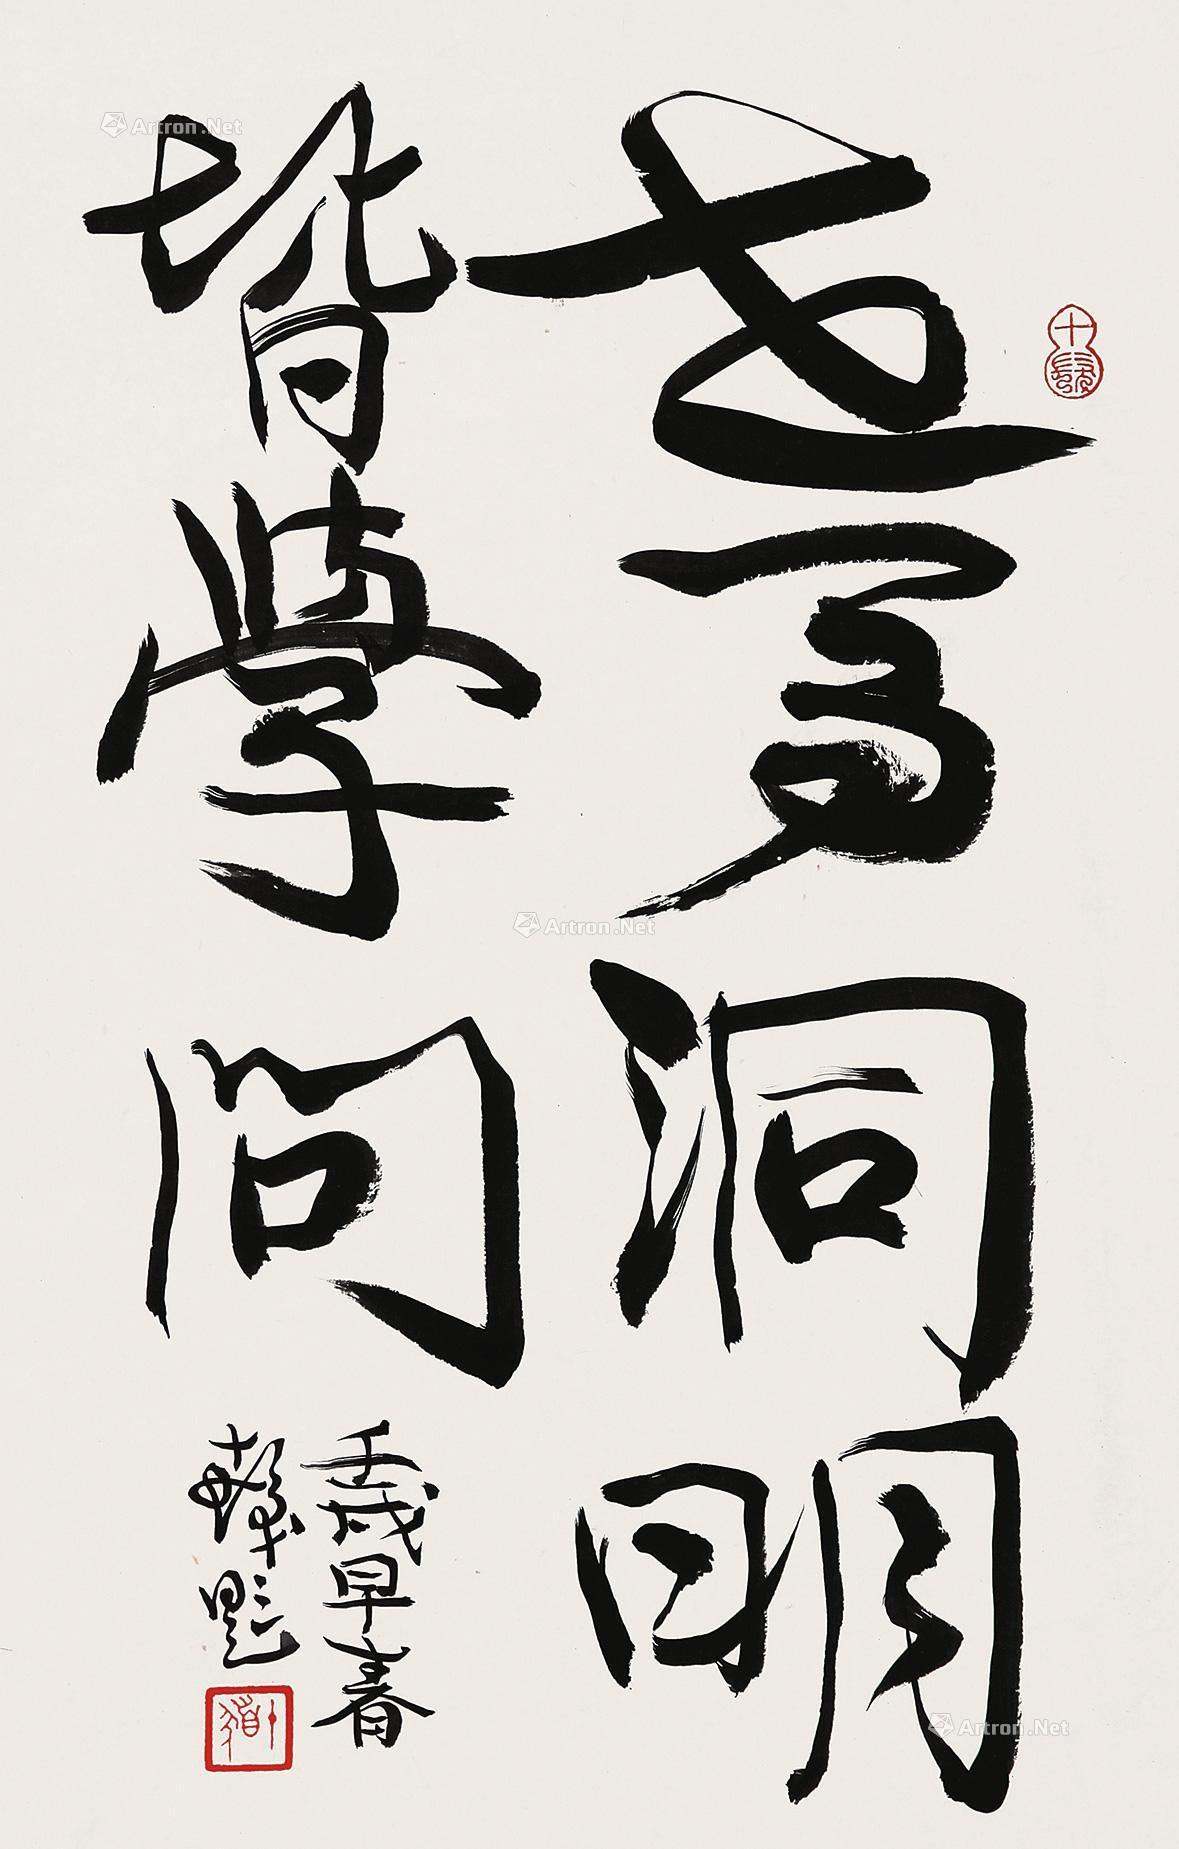 世事洞明
皆學問
壬戌早春
十髮題
十髮
Artron.Net
Artron.Net
Artron.Net